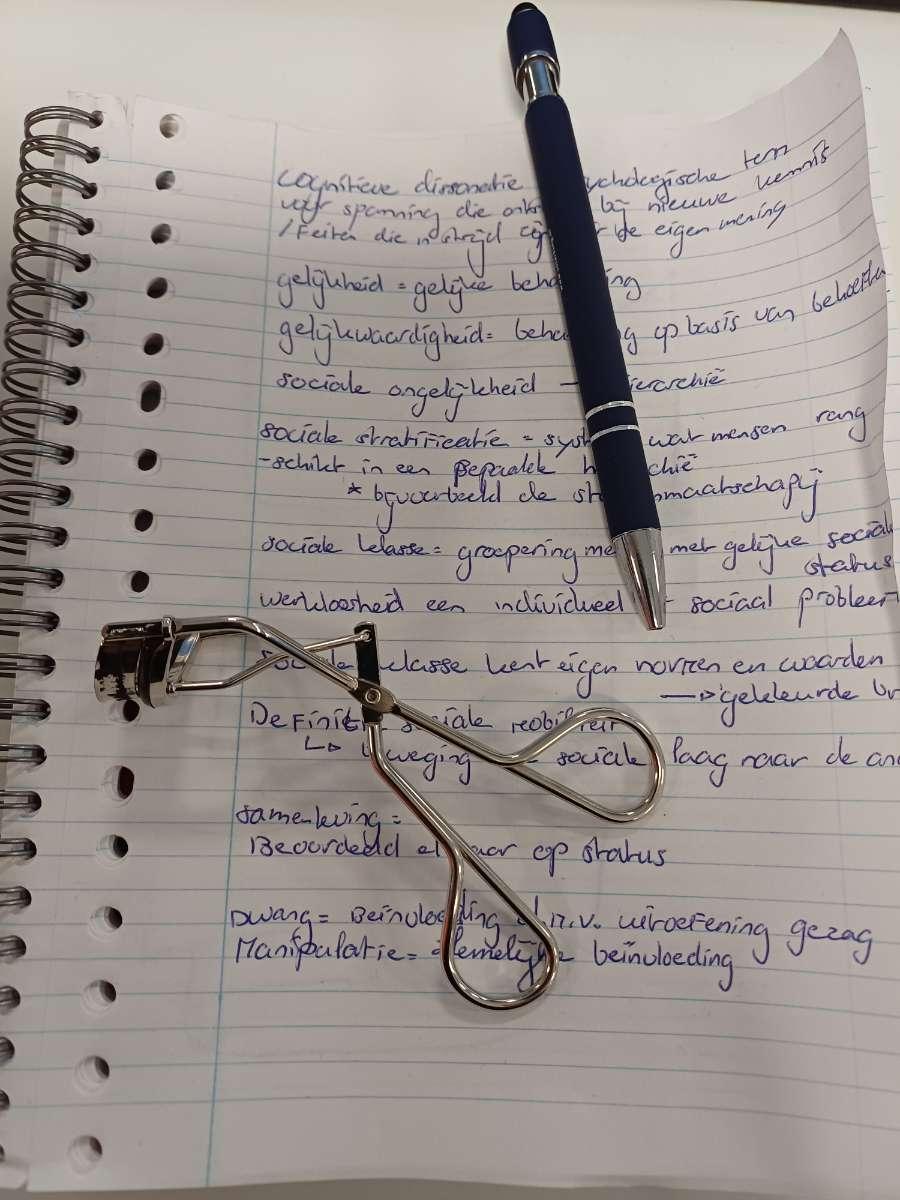 cognitieve dissonatie psychologische term
voor spanning die onts bij nieuwe kennis
/Feiten die in strijd zijn de eigen mening
gelijkheid = gelijke beha ing
gelijkwaardigheid = beha g op basis van behoefte
sociale ongelijkheid → hierarchië
sociale stratificatie = syst wat mensen rang
-schikt in een bepaalde h chië
* bijvoorbeeld de st maatschapij
sociale klasse = groepering me met gelijke sociale
status
werkloosheid een individueel sociaal probleem
sociale klasse kent eigen normen en waarden
→ gekleurde br
Definit sociale mobiliteit
↳ beweging sociale laag naar de and
samenleving =
Beoordeeld el aar op status
Dwang = Beïnvloeding d.m.v. uitoefening gezag
Manipulatie = heimelijke beïnvloeding